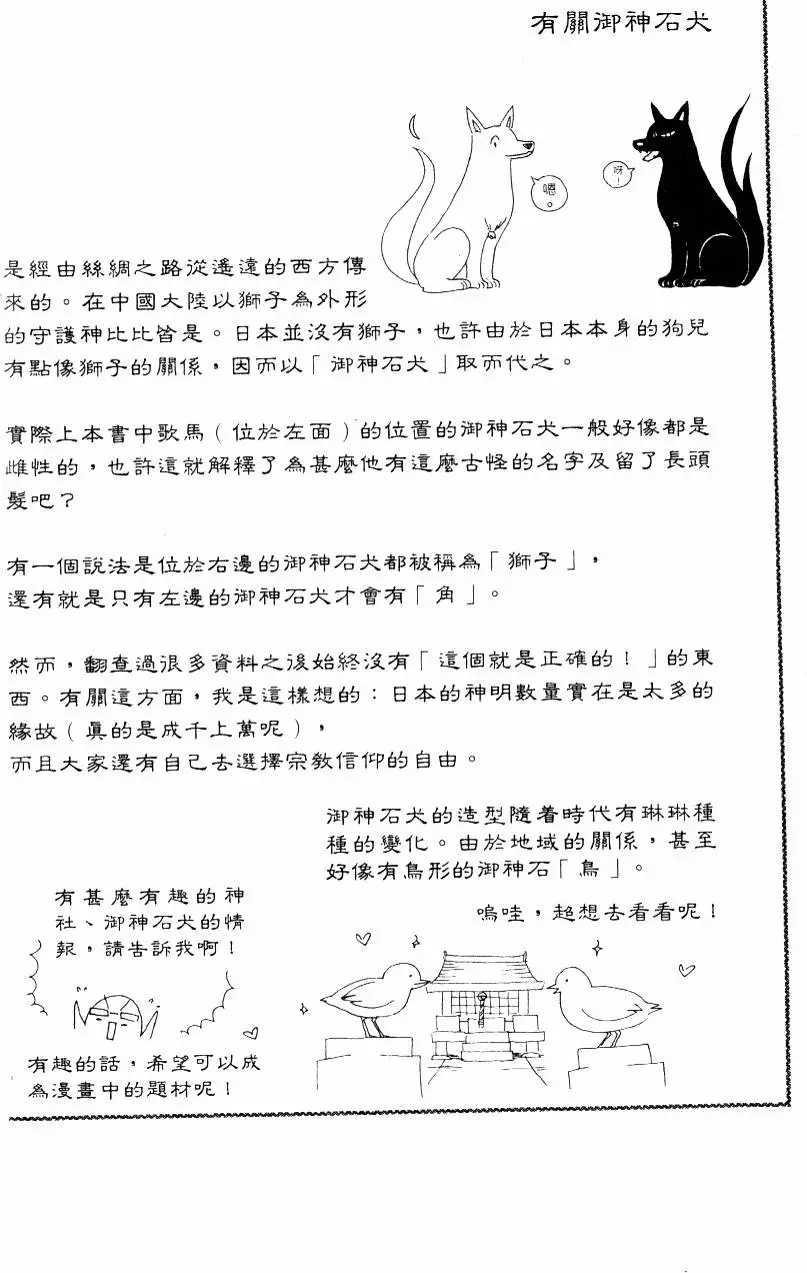 有關御神石犬
嗯。
呀!
是經由絲綢之路從遙遠的西方傳
來的。在中國大陸以獅子為外形
的守護神比比皆是。日本並沒有獅子，也許由於日本本身的狗兒
有點像獅子的關係，因而以「御神石犬」取而代之。
實際上本書中歌馬(位於左面)的位置的御神石犬一般好像都是
雌性的，也許這就解釋了為甚麼他有這麼古怪的名字及留了長頭
髮吧?
有一個說法是位於右邊的御神石犬都被稱為「獅子」，
還有就是只有左邊的御神石犬才會有「角」。
然而，翻查過很多資料之後始終沒有「這個就是正確的!」的東
西。有關這方面，我是這樣想的:日本的神明數量實在是太多的
緣故(真的是成千上萬呢)，
而且大家還有自己去選擇宗教信仰的自由。
御神石犬的造型隨着時代有琳琳種
種的變化。由於地域的關係，甚至
好像有鳥形的御神石「鳥」。
嗚哇，超想去看看呢!
有甚麼有趣的神
社、御神石犬的情
報，請告訴我啊!
有趣的話，希望可以成
為漫畫中的題材呢!